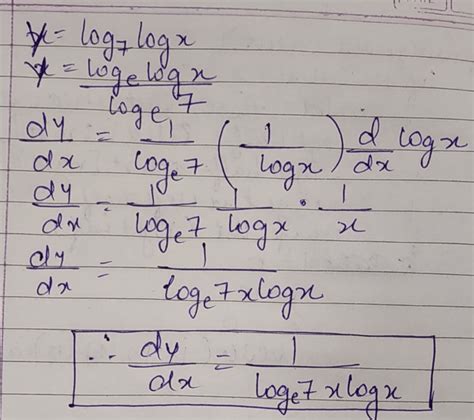 y = log₇ log x
y = logₑ log x / logₑ 7
dy/dx = 1/logₑ7 (1/log x) d/dx log x
dy/dx = 1/logₑ7 1/log x · 1/x
dy/dx = 1/logₑ7 x log x
∴ dy/dx = 1/logₑ7 x log x